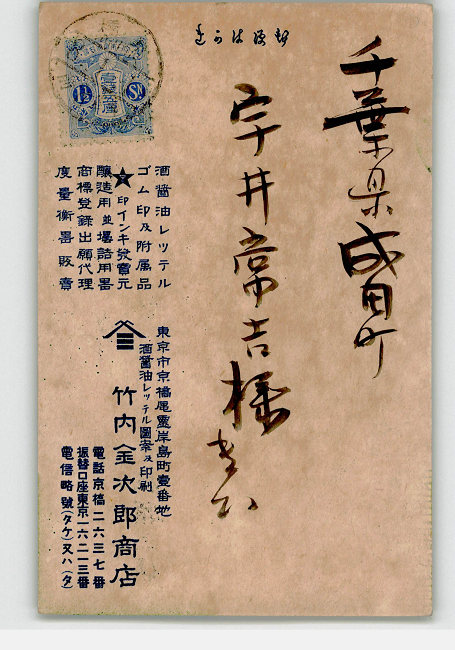 郵便はがき
千葉県成田町
宇井常吉様
壹錢五厘
1½ Sn
酒醬油レッテル
ゴム印及附属品
★印インキ發賣元
釀造用並壜詰用器
商標登録出願代理
度量衡器販賣
東京市京橋區靈岸島町壹番地
酒醬油レッテル圖案及印刷
竹内金次郎商店
電話京橋二六三七番
振替口座東京一六二一三番
電信略號(タケ)又ハ(タ)